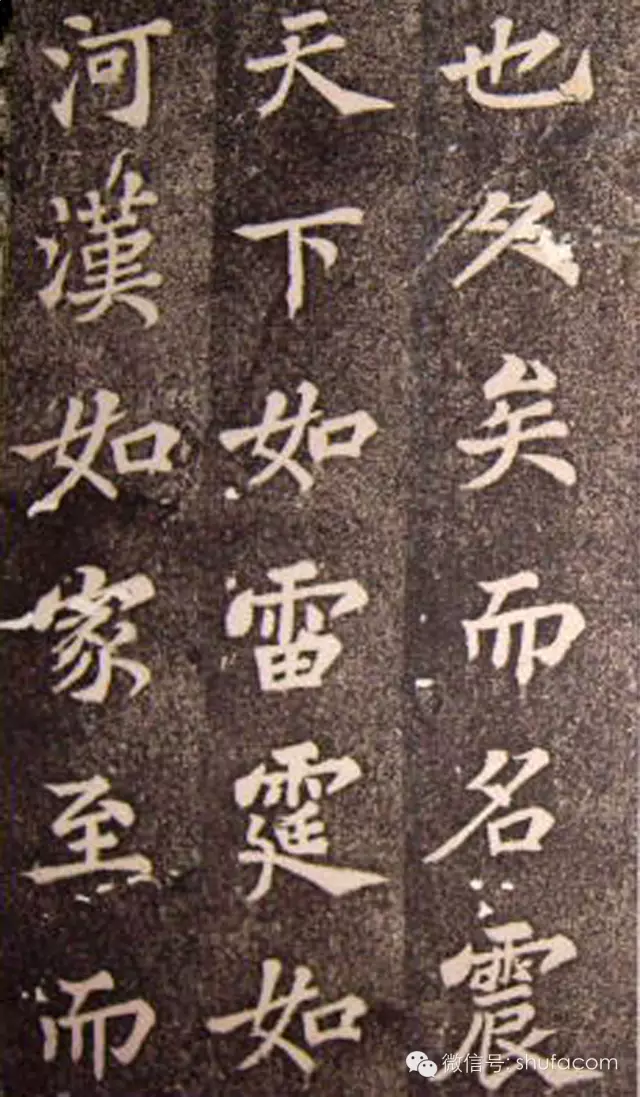 也久矣而名震
天下如雷霆如
河漢如家至而
微信号: shufacom